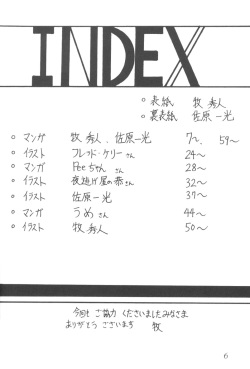 INDEX
○ 表紙 牧 秀人
○ 裏表紙 佐原 一光
○ マンガ 牧 秀人、佐原一光 7〜、59〜
○ イラスト フレッド・ケリーさん 24〜
○ マンガ Peeちゃんさん 28〜
○ イラスト 夜逃げ屋の恭さん 32〜
○ イラスト 佐原 一光 37〜
○ マンガ うめさん 44〜
○ イラスト 牧 秀人 50〜
今回も ご協力 くださいましたみなさま
ありがとう ございます 牧
6